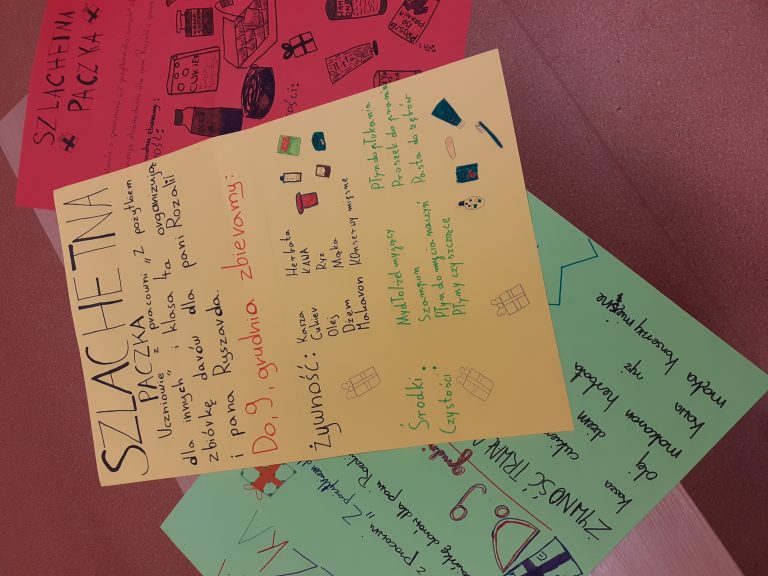 SZLACHETNA
PACZKA
Uczniowie z pracowni „Z pożytkiem
dla innych" i klasa 4a organizują
zbiórkę darów dla pani Rozalii
i pana Ryszarda.
Do, 9, grudnia zbieramy:
Żywność:
Kasza Herbata
Cukier KAWA
Olej Ryż
Dżem Mąka
Makaron Konserwy mięsne
Środki
Czystości:
Mydło/żel myjący Płyn do płukania
Szampon Proszek do prania
Płyn do mycia naczyń Pasta do zębów
Płyny czyszczące
SZLACHETNA
PACZKA
CUKIER
"Z pożytkiem
z pracowni
zbiórkę darów dla pani Rozalii
Do 9
ŻYWNOŚĆ TRWAŁA
kasza cukier dżem herbata ryż
olej makaron kawa mąka konserwy mięsne